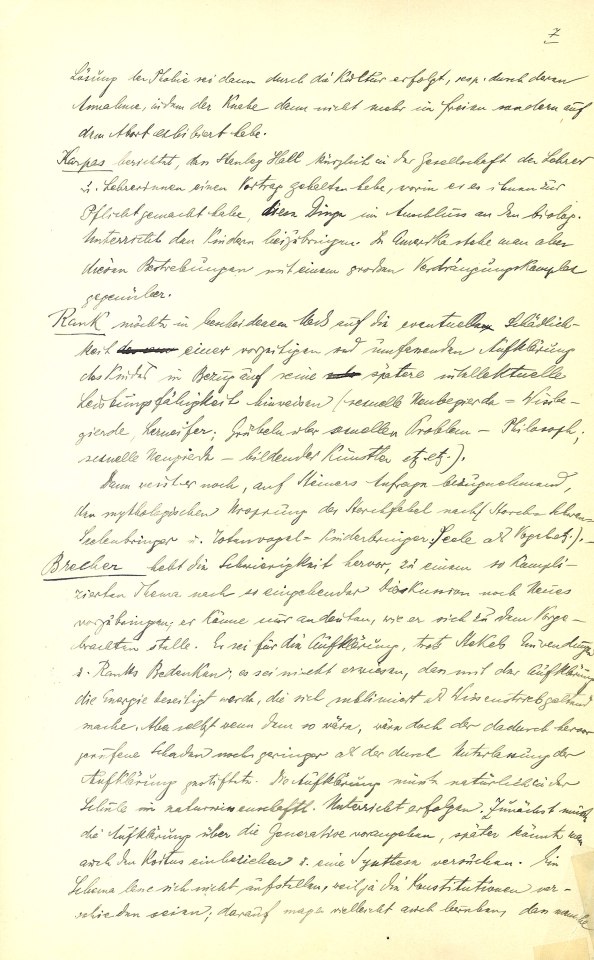 7
Lösung der Phobie sei dann durch die Kultur erfolgt, resp. durch deren
Annahme, indem der Knabe dann nicht mehr im freien sondern auf
dem Abort exhibiert habe.
Karpas berichtet, dass Stanley Hall kürzlich in der Gesellschaft der Lehrer
u. Lehrerinnen einen Vortrag gehalten habe, worin er es ihnen zur
Pflicht gemacht habe, diese Dinge im Anschluss an den biolog.
Unterricht den Kindern beizubringen. In Amerika stehe man aber
diesen Bestrebungen mit einem grossen Verdrängungskomplex
gegenüber.
Rank möchte in bescheidenem Mass auf die eventuellen Schädlich-
keit einer vorzeitigen und umfassenden Aufklärung
des Kindes in Bezug auf seine spätere intellektuelle
Leistungsfähigkeit hinweisen (sexuelle Neubegierde = Wissbe-
gierde, Lerneifer; Grübeln über sexuellen Problem – Philosoph;
sexuelle Neugierde – bildender Künstler etz. etz.).
Dann weist er noch, auf Steiners Anfrage bezugnehmend,
den mythologischen Ursprung der Storchfabel nach (Storch = Schwan =
Seelenbringer u. Totenvogel = Kinderbringer. Seele als Vogel etz.). –
Brecher hebt die Schwierigkeit hervor, zu einem so kompli-
zierten Thema nach so eingehender Diskussion noch Neues
vorzubringen; er könne nur andeuten, wie er sich zu dem Vorge-
brachten stelle. Er sei für die Aufklärung, trotz Stekels Einwendungen
u. Ranks Bedenken; es sei nicht erwiesen, dass mit der Aufklärung
die Energie beseitigt werde, die sich sublimiert als Wissenstrieb geltend
mache. Aber selbst wenn dem so wäre, wäre doch der dadurch hervor-
gerufene Schaden noch geringer als der durch Unterlassung der
Aufklärung gestiftete. Die Aufklärung müsste natürlich in der
Schule im naturwissenschaftl. Unterricht erfolgen. Zunächst müsste
die Aufklärung über die Generative vorangehen, später könnte man
auch den Koitus einbeziehen u. eine Synthese versuchen. Ein
Schema lasse sich nicht aufstellen, weil ja die Konstitutionen ver-
schieden seien; darauf mag es vielleicht auch beruhen, dass manche